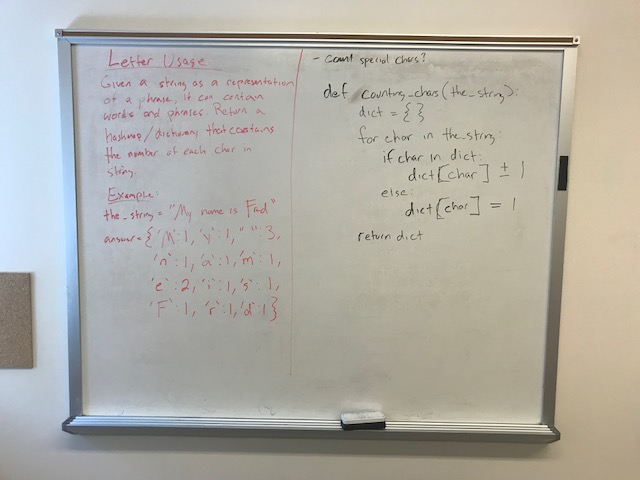 Letter Usage
Given a string as a representation
of a phrase, it can contain
words and phrases. Return a
hashmap/dictionary that contains
the number of each char in
string.
Example:
the_string = "My name is Fred"
answer = {'M':1, 'y':1, " ":3,
'n':1, 'a':1, 'm':1,
'e':2, 'i':1, 's':1,
'F':1, 'r':1, 'd':1}
- count special chars?
def counting_chars(the_string):
dict = {}
for char in the_string:
if char in dict:
dict[char] ± 1
else:
dict[char] = 1
return dict